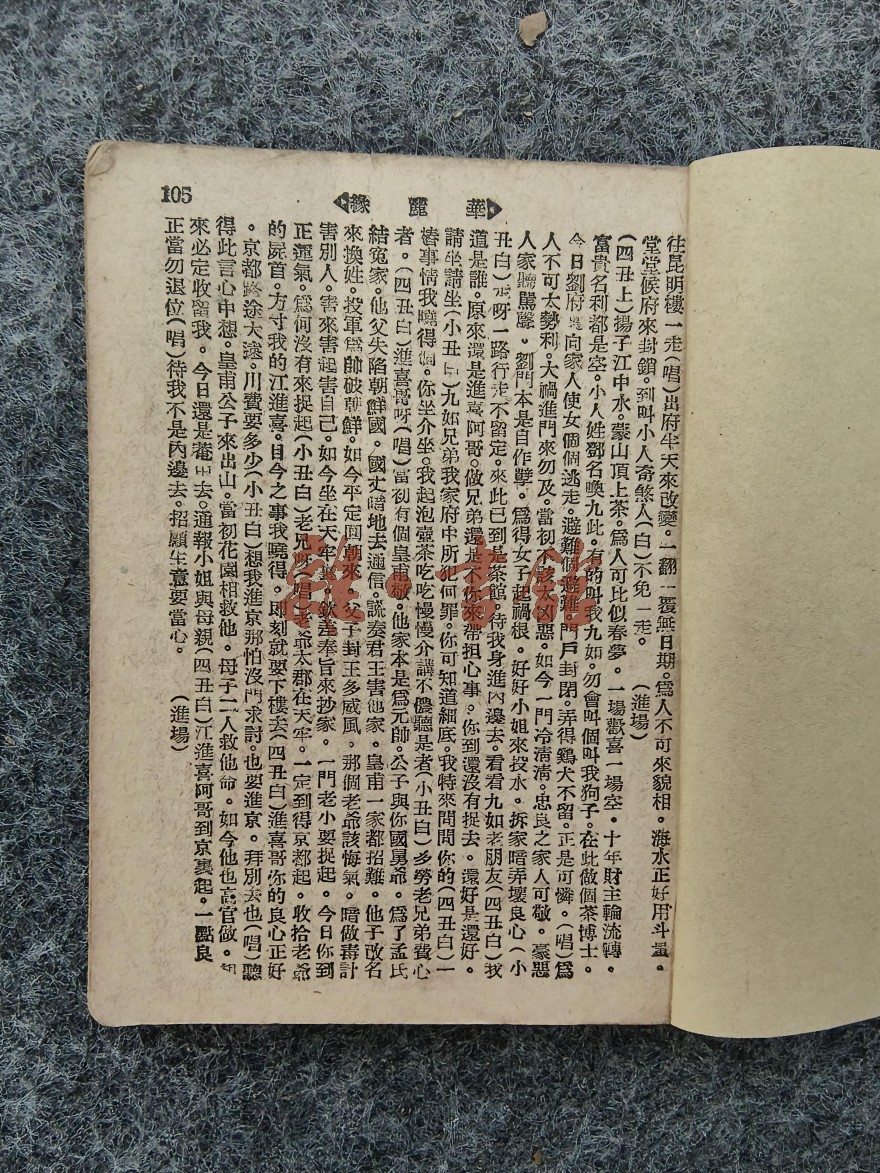 華麗緣
105
往昆明樓一走(唱)出府半天來改變。一翻一覆無日期。爲人不可來貌相。海水正好用斗量。
堂堂侯府來封鎖。到叫小人奇煞人(白)不免一走。 (進場)
(四丑上)揚子江中水。蒙山頂上茶。爲人可比似春夢。一場歡喜一場空。十年財主輪流轉。
富貴名利都是空。小人姓鄧名喚九此。有的叫我九如。勿會叫個叫我狗子。在此做個茶博士。
今日劉府 向家人使女個個逃走。避難個避難。門戶封閉。弄得鷄犬不留。正是可憐。(唱)爲
人不可太勢利。大禍進門來勿及。當初不該太凶惡。如今一門冷清清。忠良之家人可敬。豪惡
人家聽罵聲。劉門本是自作孽。爲得女子起禍根。好好小姐來投水。拆家暗弄壞良心(小
丑白)走呀一路行走不留定。來此已到是茶館。待我身進內邊去。看看九如老朋友(四丑白)我
道是誰。原來還是進喜阿哥。做兄弟還是不你來帶担心事。你到還沒有捉去。還好是還好。
請坐請坐(小丑白)九如兄弟我家府中所犯何罪。你可知道細底。我特來問問你的(四丑白)一
樁事情我曉得個。你坐介坐。我起泡壺茶吃吃慢慢介講不儂聽是者(小丑白)多勞老兄弟費心
者。(四丑白)進喜哥呀(唱)當初有個皇甫敬。他家本是爲元帥。公子與你國舅爺。爲了孟氏
結冤家。他父失陷朝鮮國。國丈暗地去通信。謊奏君王害他家。皇甫一家都招難。他子改名
來換姓。投軍爲帥破朝鮮。如今平定囘朝來。父子封王多威風。那個老爺該悔氣。暗做毒計
害別人。害來害起害自己。如今坐在天牢裏。欽差奉旨來抄家。一門老小要捉起。今日你到
正運氣。爲何沒有來捉起(小丑白)老兄呀(唱)老爺太郡在天牢。一定到得京都起。收拾老爺
的屍首。方寸我的江進喜。目今之事我曉得。即刻就要下樓去(四丑白)進喜哥你的良心正好
。京都路途大遠。川費要多少(小丑白)想我進京那怕沒門求討。也要進京。拜別去也(唱)聽
得此言心中想。皇甫公子來出山。當初花園相救他。母子二人救他命。如今他也高官做。
來必定收留我。今日還是菴中去。通報小姐與母親(四丑白)江進喜阿哥到京裏起。一點良
正當勿退位(唱)待我不是內邊去。招顧生意要當心。 (進場)